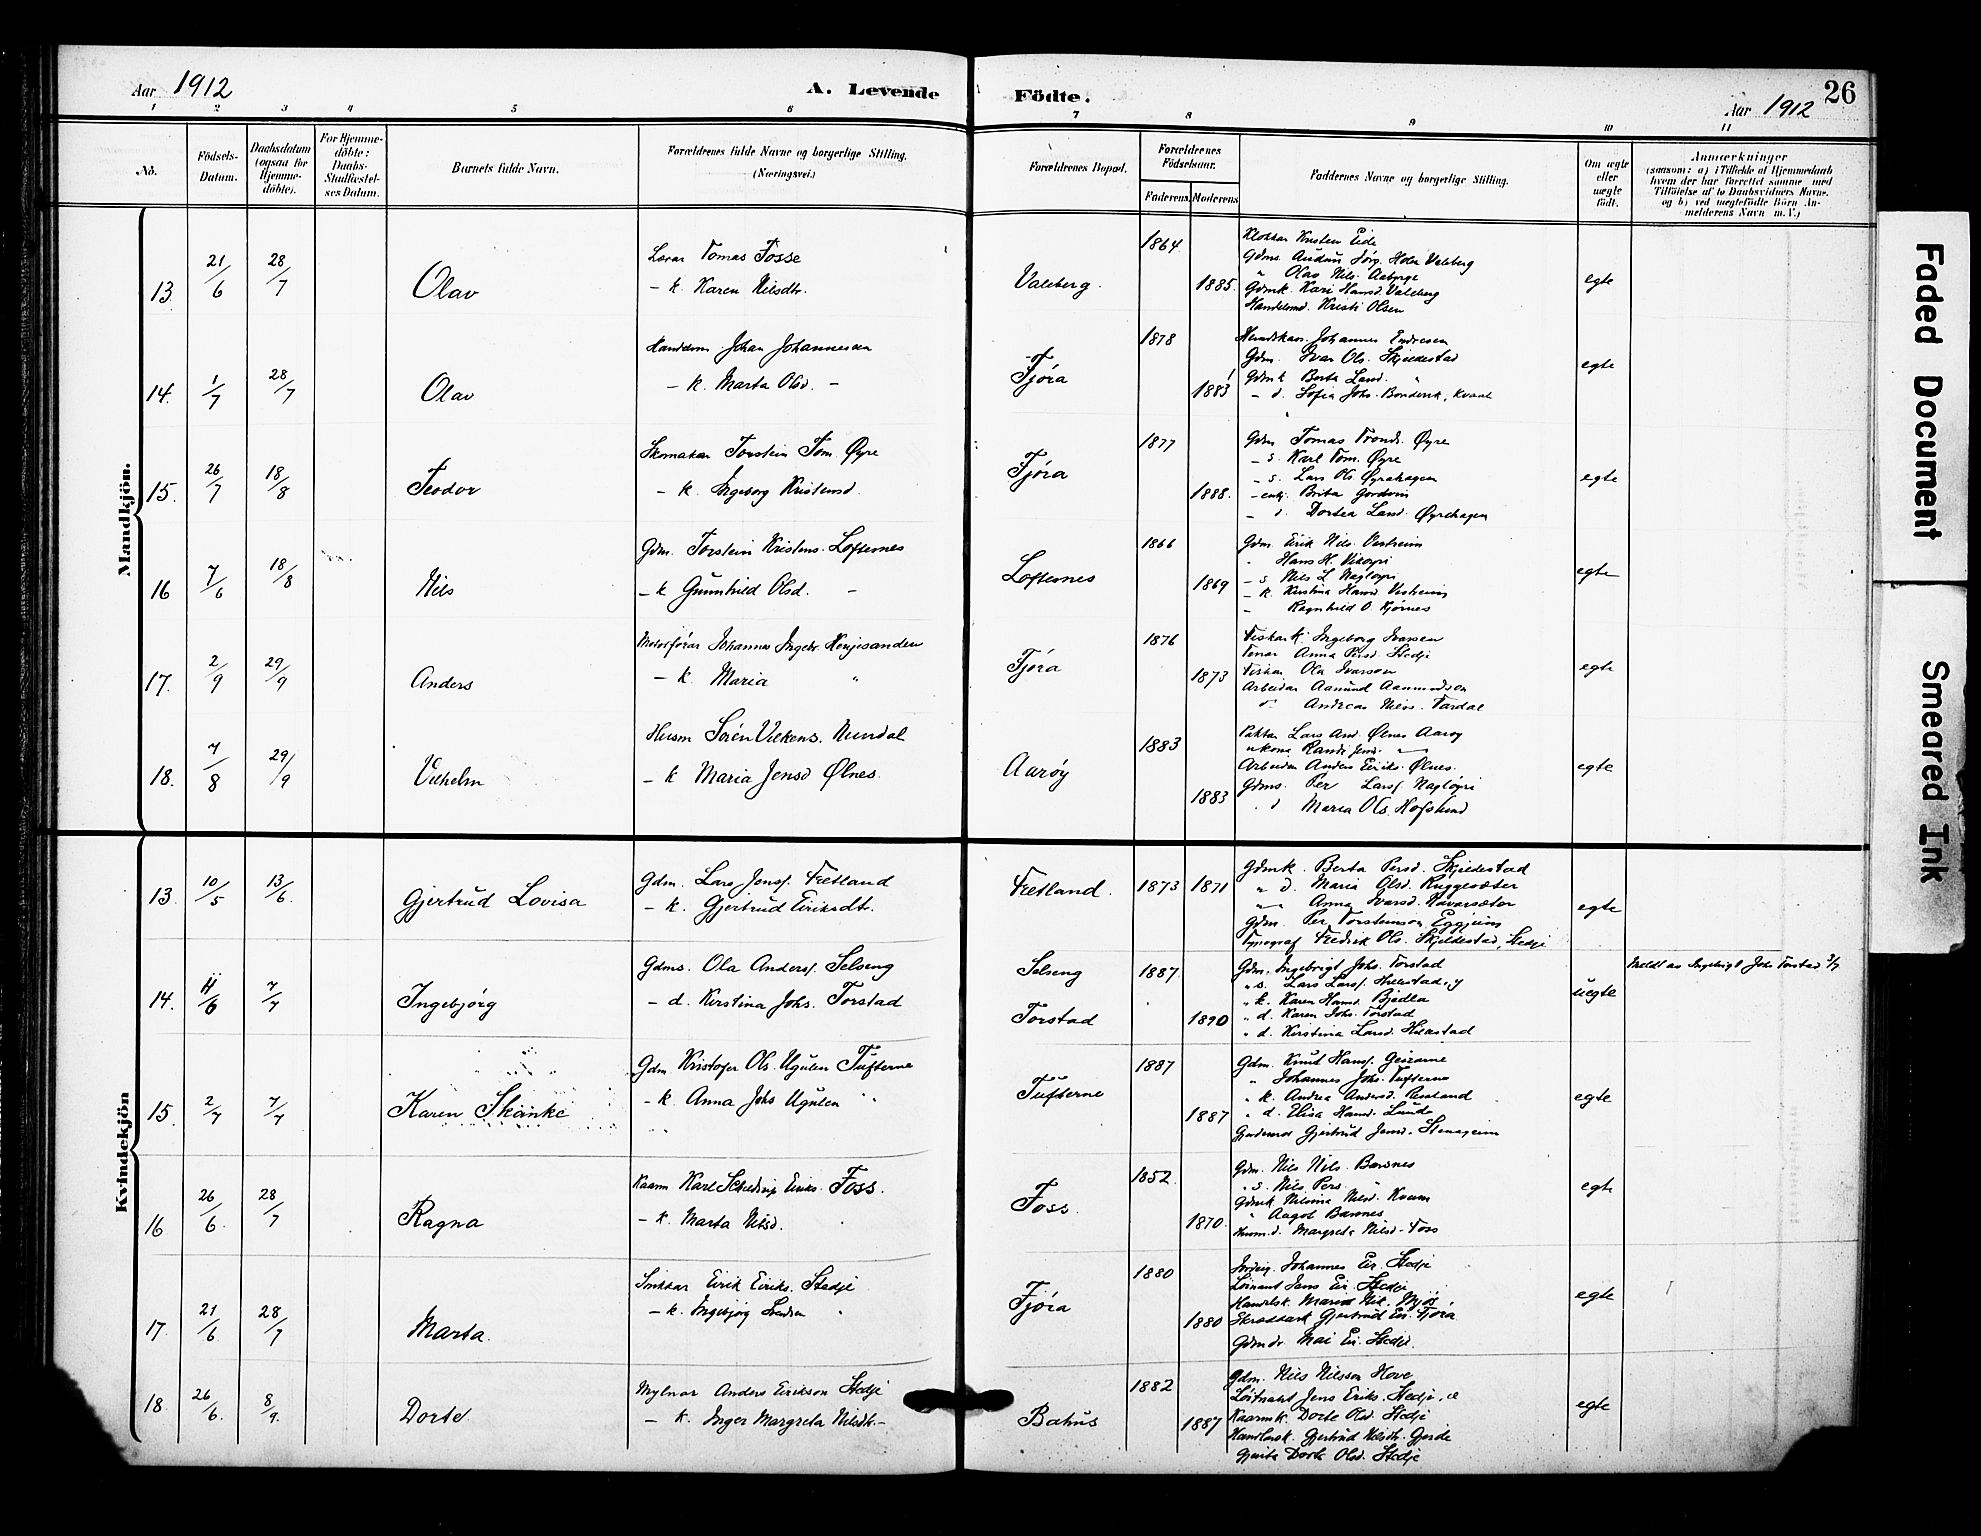 Aar 1912
A. Levende
Födte.
26
Aar 1912
1 2 3 4 5 6 7 8 9 10 11
No.
Födsels-Datum.
Daabsdatum (ogsaa for Hjemme-döbte).
For Hjemme-döbte: Daabs-Stadfæstel-ses Datum.
Barnets fulde Navn.
Forældrenes fulde Navne og borgerlige Stilling. (Næringsvei.)
Forældrenes Bopæl.
Forældrenes Födselsaar.
Faderens Moderens
Faddernes Navne og borgerlige Stilling.
Om ægte eller uægte födt.
Anmærkninger
(saasom: a) i Tilfælde af Hjemmedaab
hvem der har forrettet samme med
Tilföielse af to Daabsvidners Navne.
og b) ved uægtefödte Börn An-
melderens Navn m. V.)
Mandkjön.
13. 21/6 28/7 Olav
Lærar Tomas Fosse
- k. Karen Nilsdtr.
Valeberg. 1864 1885.
Klokkar Kristen Eide
Gdms. Audun Jörg. Holen Valeberg
" Olav Nils. Aaberge
Gdmk. Kari Hansd. Valeberg
Handelsmd. Kristi Olsen
egte
14. 1/7 28/7 Olav
Handelsm. Johan Johannessen
- k. Marta Olsd. -
Fjöra 1878 1883
Johannes Endresen
Gdm. Ivar Ols. Skjeldestad
Gdmk Berta Land.
- d. Sofia Johs. Bondevik, Kvaal
egte
15. 26/7 18/8 Teodor
Skomakar Torstein Tom. Øyre
- k. Ingeborg Kristensd.
Fjöra 1877 1888.
Gdm Tomas Tronds. Øyre
- s. Karl Tom. Øyre
- s. Lars Ols Øyrahagen
- enkj. Brita
- d. Dortea Land. Øyrehagen
egte
16 7/6 18/8 Nils
Gdm. Torstein Kristens. Loftesnes
- k Gunnhild Olsd. -
Loftesnes 1866 1869
Gdm Eirik Nils. Vestheim
" Hans H. Vikøyri
- s. Nils L Nagløyri
- k. Kristina Hansd Vestheim
- Ragnhild O. Kjørnes
egte
17. 2/9 29/9 Anders
Motorførar Johannes Ingebr. Henjesanden
- k Maria "
Fjöra 1876 1873
Fiskark. Ingeborg Ivarsen
Tenar Anna Persd. Stedje
Fiskar Ola Ivarson
Arbeidar Aamund Aamundson
" Andreas Niels. Fardal
egte
18. 7/8 29/9 Vilhelm
Husm Sören Vilkens. Nundal
- k Maria Jensd Ølnes.
Aaröy 1883 1883
Lars And. Ølnes Aarøy
Randi Jens.
Arbeidar Anders Eiriks. Ølnes.
Gdms. Per Larss. Nagløyri
. d Maria Ols. Hofslund
egte
Kvindekjön
13. 10/5 13/6 Gjertrud Lovisa
Gdm. Lars Jensf. Fretland
- k. Gjertrud Eiriksdtr.
Fretland. 1873 1871
Gdmk. Berta Persd. Skjeldestad
" d. Maria Olsd. Ruggesæter
" Anna Ivarsd. Navarsæter
Gdm. Per Torsteinson Eggjum
Typograf Fredrik Ols. Skjeldestad, Stedje
egte
14. 11/6 7/7 Ingebjørg
Gdms. Ola Andersf. Selseng
- d. Kirstina Johs. Torstad
Selseng
Torstad 1887. 1890
Gdm. Ingebrigt Johs. Torstad
" s. Lars Larsf. Hillestad
" k. Karen Hansd. Bjedla
" d. Karen Johs. Torstad
" d. Kirstina Larsd. Hillestad
uegte
Meldt av Ingebrigt Johs Torstad 3/7
15 2/7 7/7 Karen Skanke
Gdm Kristofer Ols. Ugulen Tufterne
- k. Anna Johs Ugulen "
Tufterne 1887 1887
Gdm. Knut Hansf. Geisrarne
" Johannes Johs. Tufterne
" k. Andrea Andersd.
" d. Elisa Hansd. Lund
Gjertrud Jensd. Stenagjeim
egte
16 26/6. 28/7 Ragna
Kaarm Karl Eiriks. Foss.
- k. Marta Nilsd.
Foss. 1852. 1870.
Gdm. Nils Nils. Barsnes
" s. Nils Pers.
Gdmk Nilsina Nilsd. Kvam
" Aagot Barsnes
Margreta Nilsd. Foss
egte
17. 21/6 28/7 Marta.
Snikkar Eirik Eiriks. Stedje
- k. Ingebjørg
Fjöra 1880 1880
Johannes Eir. Stedje
Løinant Jens Eir. Stedje
Handelsk. Maria Nil. Mjøs
Skræddark Gjertrud Eir. Fjøra
Gdmdr. Mai Eir. Stedje
egte
18. 26/6. 8/9. Dorte
Mylnar Anders Eirikson Stedje
- k. Inger Margreta Nilsdtr. -
Bahus 1882 1887
Gdm. Nils Nilsson Hove
Løitnant Jens Eiriks. Stedje
Kaarmk. Dorte Olsd. Stedje
Handlarsk. Gjertrud Nilsdtr. Gjerde
Gjenta Dorte Olsd. Stedje
egte
Faded Document
Smeared Ink